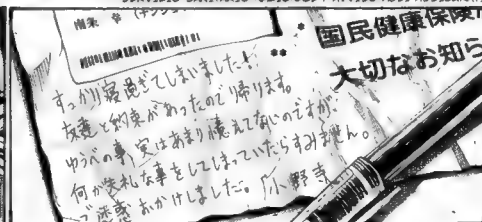 南朱 幸
国民健康保険
大切なお知ら
すっかり寝過ぎてしまいました!
友達と約束があったので帰ります。
ゆうべの事、実はあまり憶えてないのですが
何か失礼な事をしてしまっていたらすみません。
ご迷惑おかけしました。 小野寺